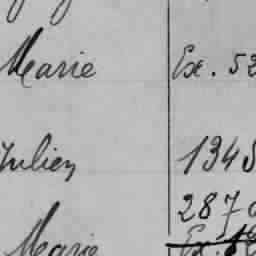 Marie Ex. 52
Julien 1345
2870
Marie Ex.